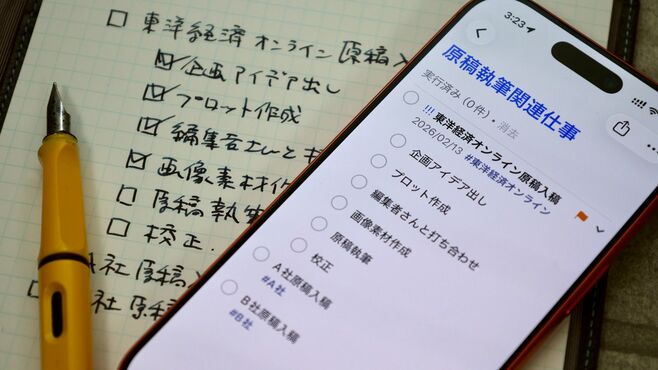 東洋経済オンライン原稿入
企画アイデア出し
プロット作成
編集者さんと
画像素材作
原稿執
校正
社原稿
社原稿
3:23
原稿執筆関連仕事
実行済み(0件)・消去
!!! 東洋経済オンライン原稿入稿
2026/02/13 #東洋経済オンライン
企画アイデア出し
プロット作成
編集者さんと打ち合わせ
画像素材作成
原稿執筆
校正
A社原稿入稿
#A社
B社原稿入稿
#B社